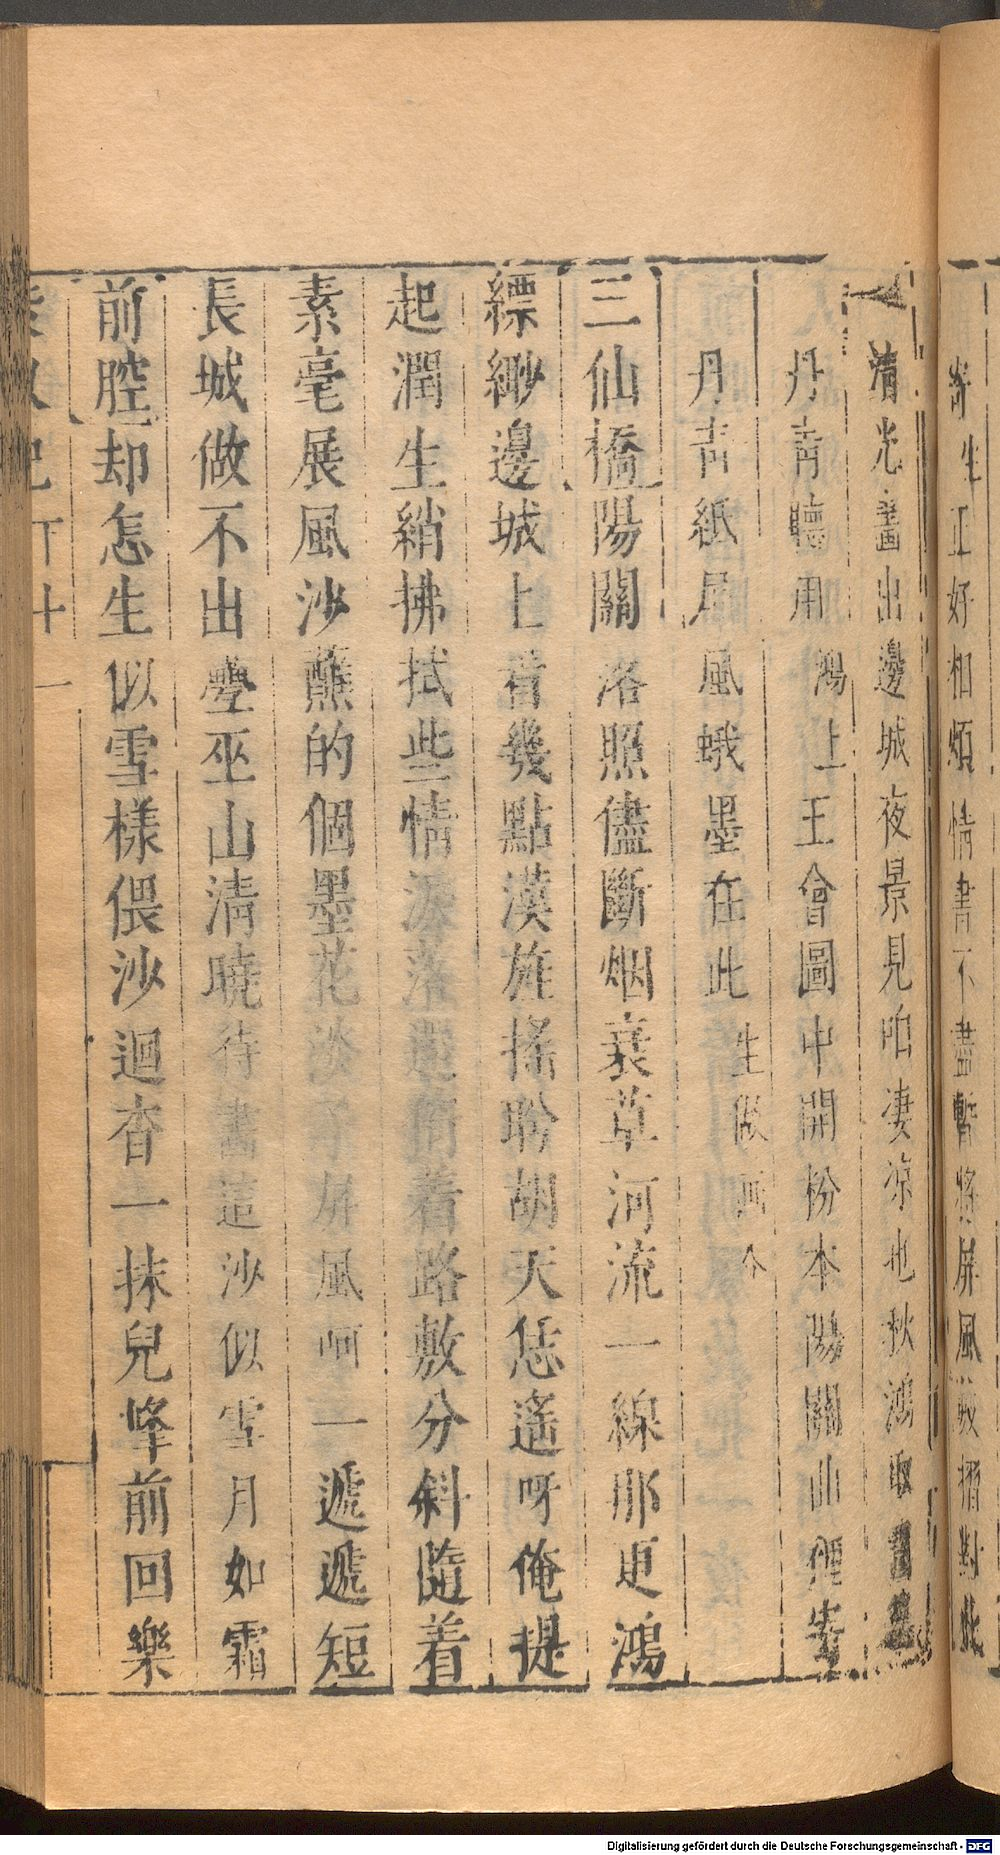 寄生正好相煩情書不盡暫將屏風數摺對此
清光畫出邊城夜景見咱凄凉也秋鴻取畫
丹青聽用鴻上王會圖中開粉本陽關山裡
丹青紙屏風螺墨在此生做畫介
三仙橋陽關落照儘斷烟衰草河流一線那更鴻
縹緲邊城上看幾點漢旌搖盼胡天恁遙呀俺提
起潤生綃拂拭些情淚落還倩着路數分斜隨着
素毫展風沙蘸的個墨花淡了屏風呵一遞遞短
長城做不出疊巫山清曉待畫這沙似雪月如霜
前腔却怎生似雪樣偎沙迴杳一抹兒峰前回樂
紫釵記下十一
Digitalisierung gefördert durch die Deutsche Forschungsgemeinschaft - DFG